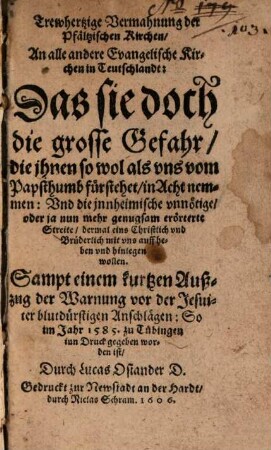 Trewhertzige Vermahnung der
Pfältzischen Kirchen/
An alle andere Evangelische Kir-
chen in Teutschlandt:
Das sie doch
die grosse Gefahr/
die jhnen so wol als vns vom
Papsthumb fürstehet/ in Acht nem-
men: Vnd die jnnheimische vnnötige/
oder ja nun mehr genugsam erörterte
Streite/ dermal eins Christlich vnd
Brüderlich mit vns auffhe-
ben vnd hinlegen
wollen.
Sampt einem kurtzen Auß-
zug der Warnung vor der Jesui-
ter blutdürstigen Anschlägen: So
im Jahr 1585. zu Tübingen
inn Druck gegeben wor-
den ist/
Durch Lucas Osiander D.
Gedruckt zur Newstadt an der Hardt/
durch Niclas Schram. 1606.